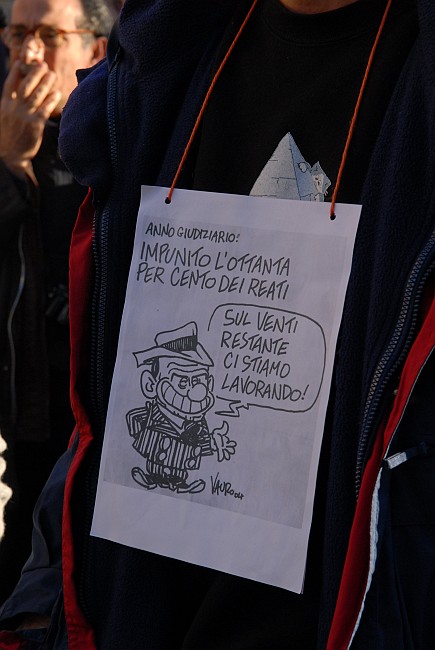 ANNO GIUDIZIARIO:
IMPUNITO L'OTTANTA
PER CENTO DEI REATI
SUL VENTI
RESTANTE
CI STIAMO
LAVORANDO!
VAURO